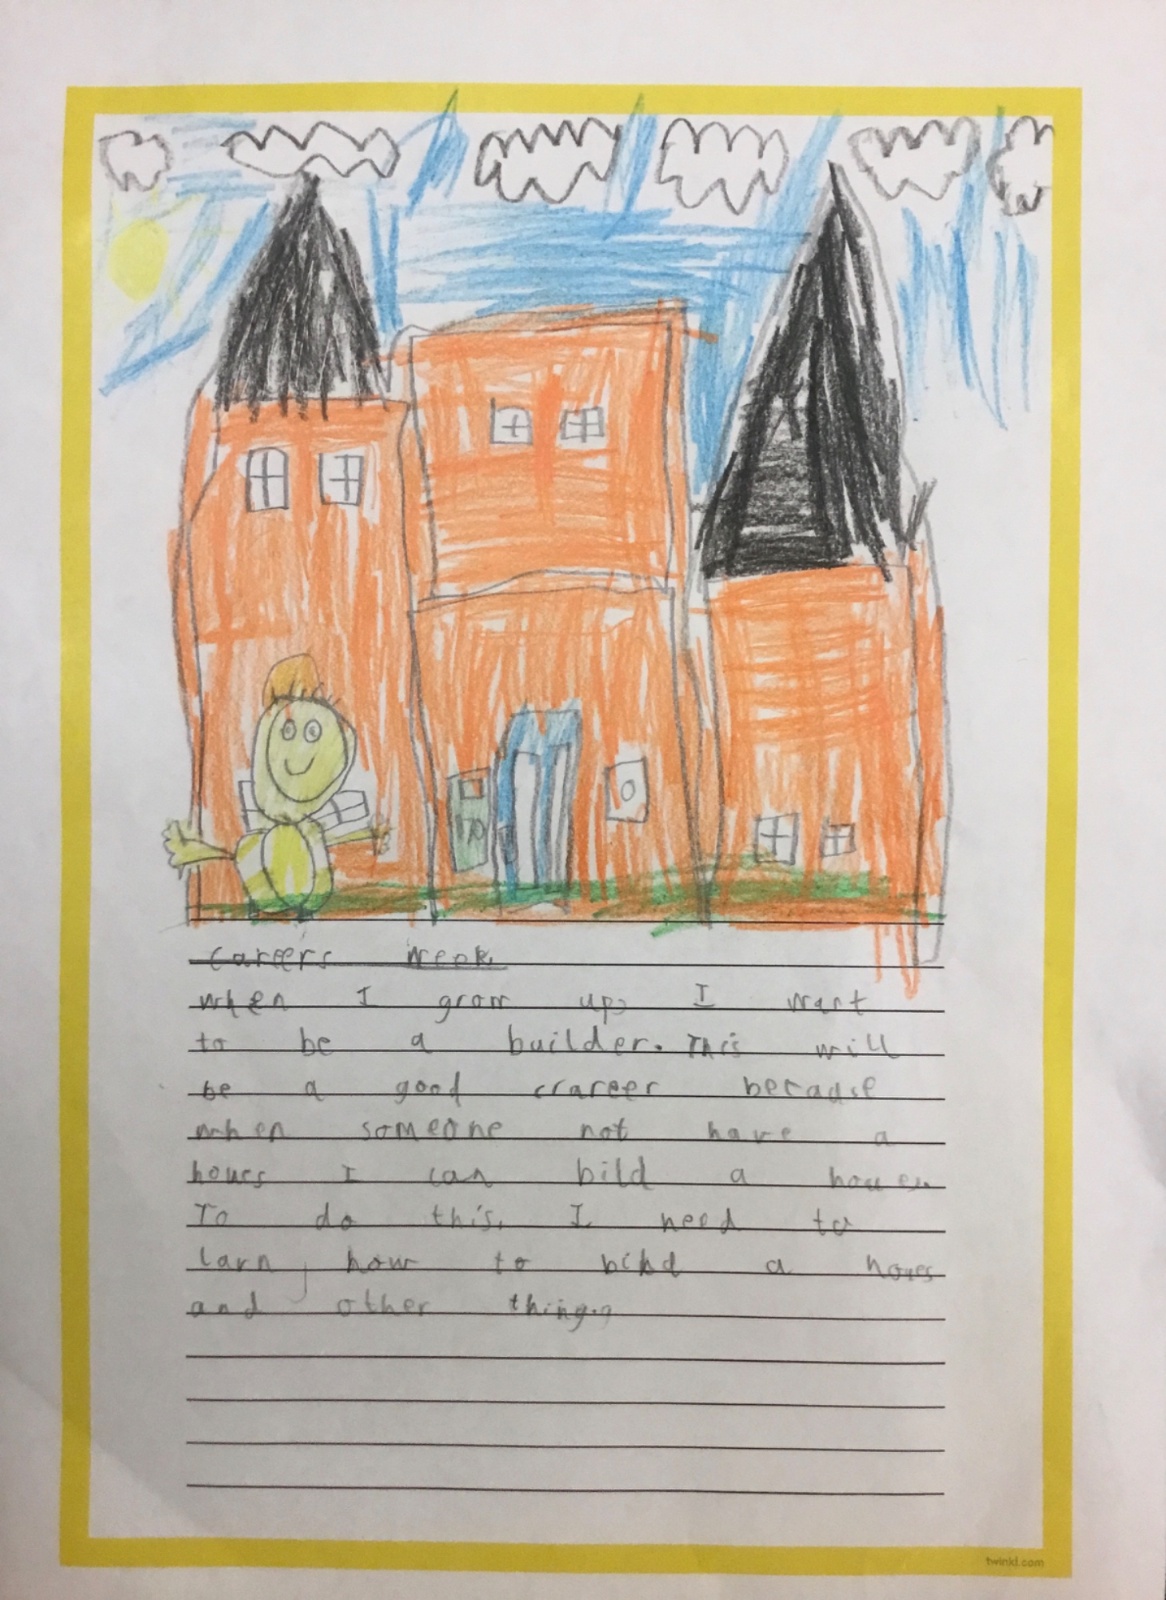 Careers Week
when I grow up, I want
to be a builder. This will
be a good crareer becaduse
when someone not have a
hours I can bild a houes.
To do this, I need to
larn how to bild a houes
and other thing.
twinkl.com